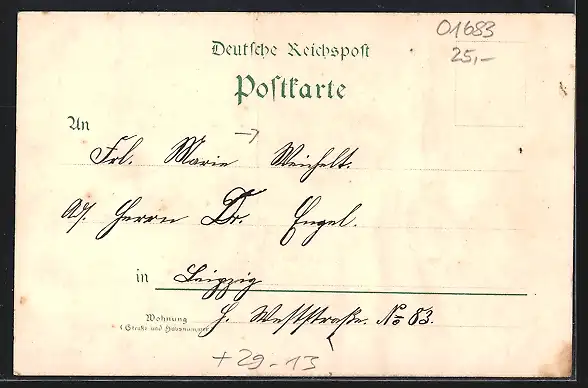 01683
25,-
Deutsche Reichspost
Postkarte
An
Frl. Marie Weichelt.
Ad. Herrn Dr. Engel.
in Leipzig
Wohnung
(Straße und Hausnummer)
H. Weststraße. No 83.
+29-13